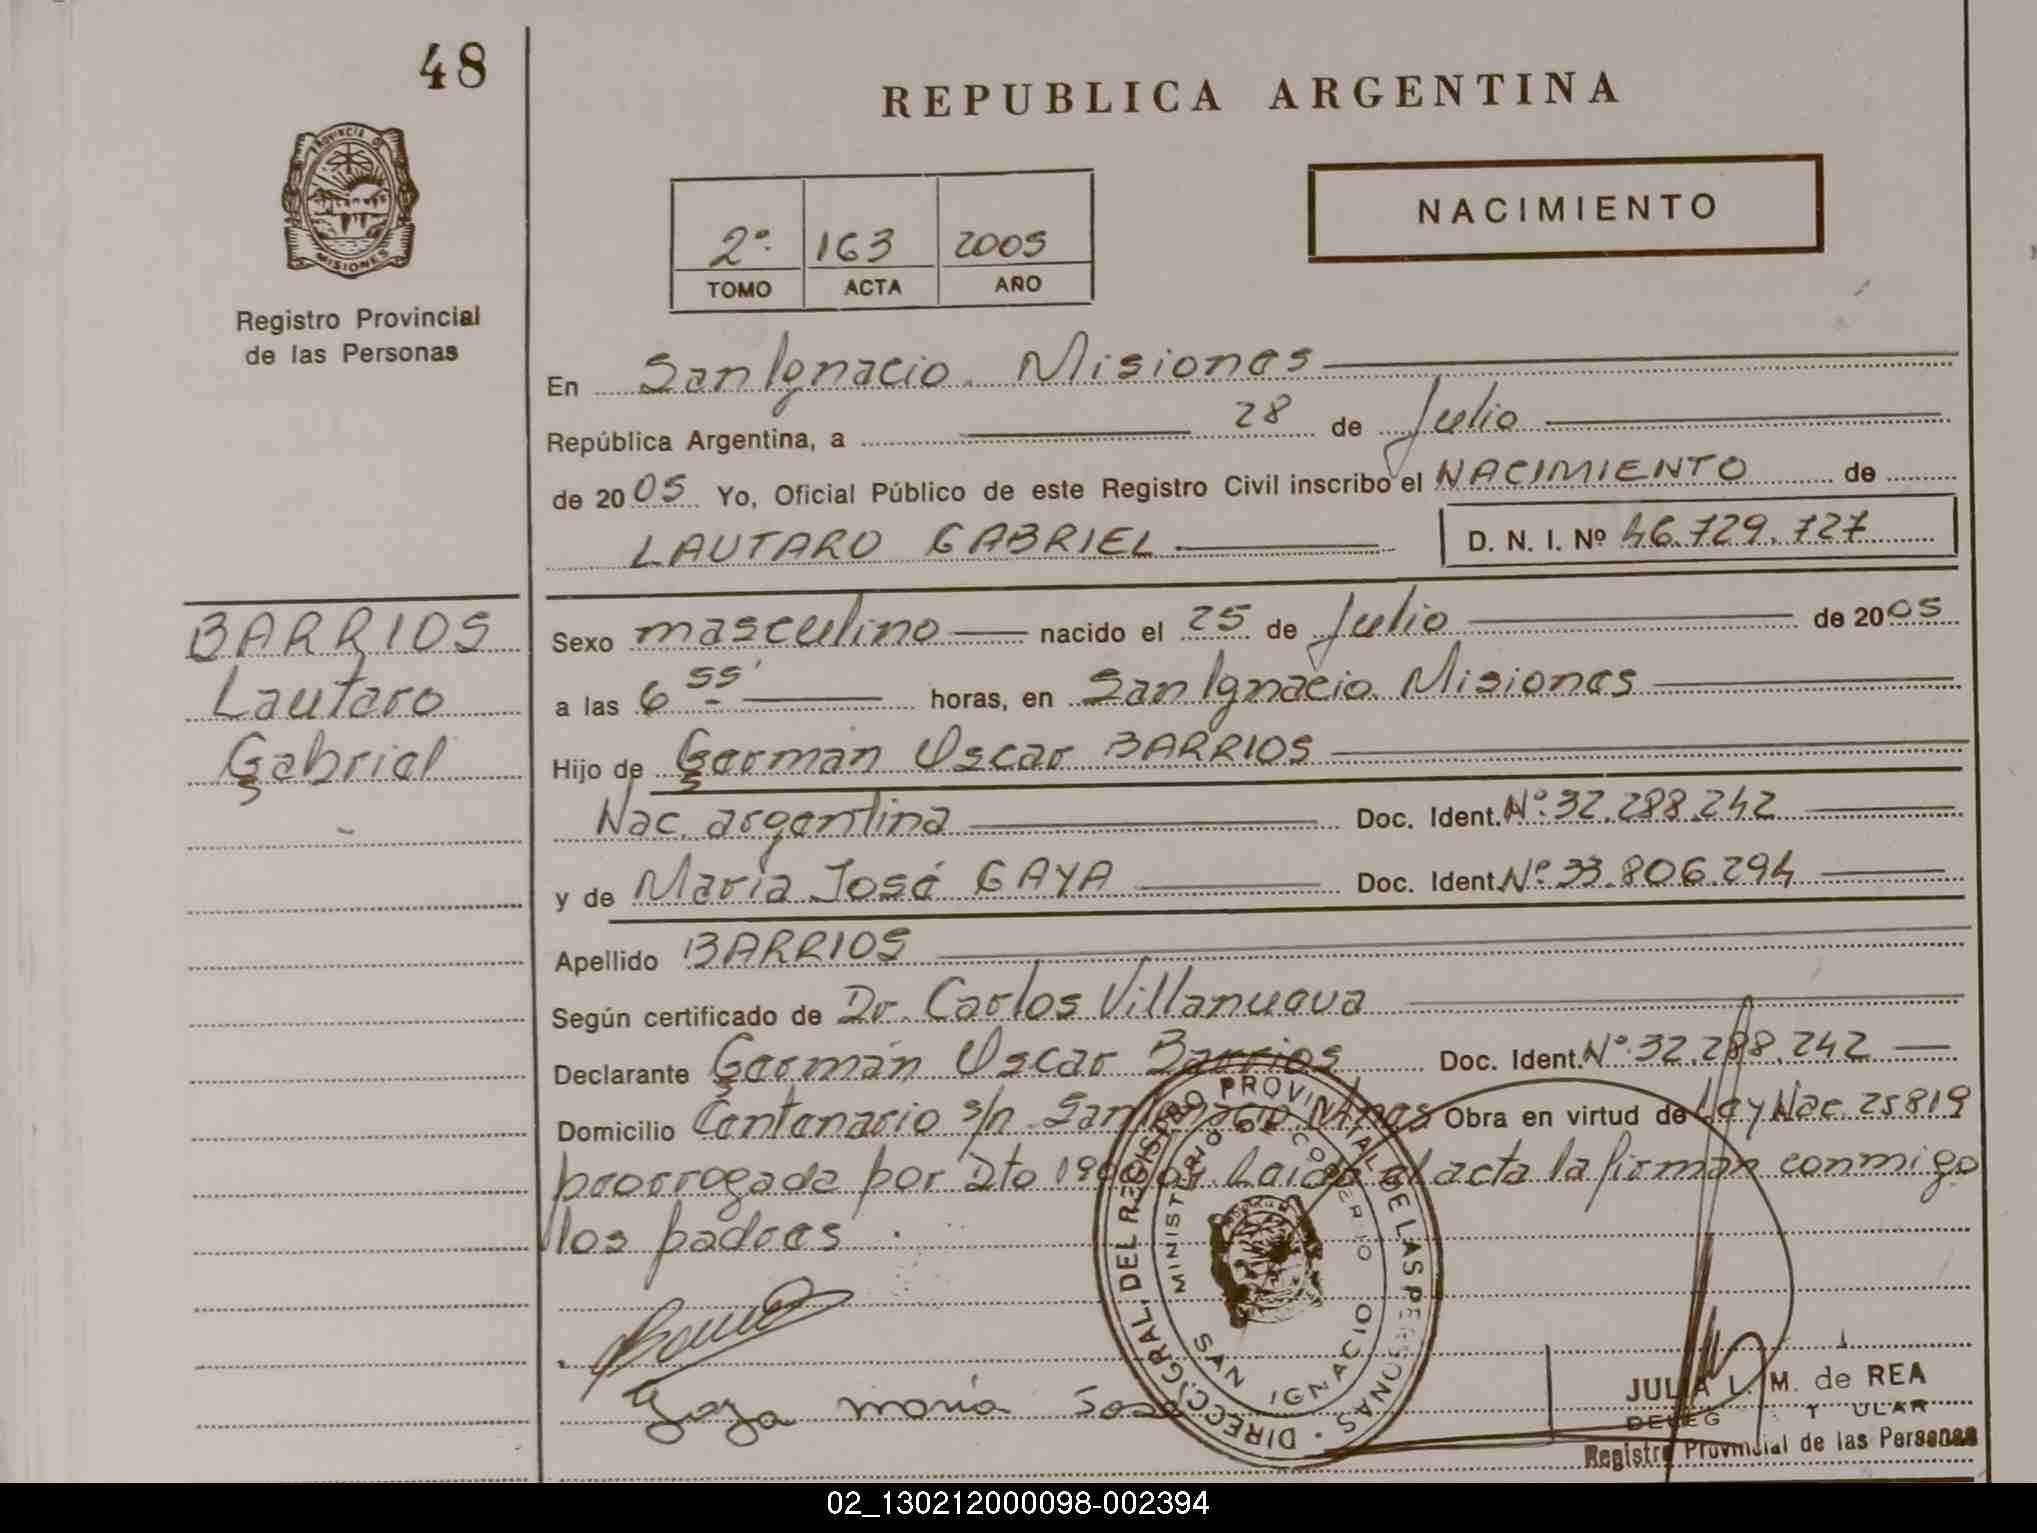 48
REPUBLICA ARGENTINA
PROVINCIA DE
MISIONES
NACIMIENTO
2º 163 2005
TOMO ACTA AÑO
Registro Provincial
de las Personas
En San Ignacio. Misiones
República Argentina, a 28 de Julio
de 2005 Yo, Oficial Público de este Registro Civil inscribo el NACIMIENTO de
LAUTARO GABRIEL D. N. I. Nº 46.729.727
BARRIOS
Lautaro
Gabriel
Sexo masculino nacido el 25 de Julio de 2005
a las 6 55' horas, en San Ignacio. Misiones
Hijo de Germán Oscar BARRIOS
Nac. argentina Doc. Ident. Nº 32.288.242
y de María José GAYA Doc. Ident. Nº 33.806.294
Apellido BARRIOS
Según certificado de Dr. Carlos Villanueva
Declarante Germán Oscar Barrios Doc. Ident. Nº 32.288.242
Domicilio Centenario s/n San Ignacio Mnes Obra en virtud de Ley Nac. 25819
prorrogada por Dto Leída el acta la firman conmigo
los padres.
DIRECC. GRAL. DEL REGISTRO PROVINCIAL DE LAS PERSONAS
MINISTERIO DE GOBIERNO
SAN IGNACIO
Gaya maría José
JULIA L. M. de REA
Registro Provincial de las Personas
02_130212000098-002394